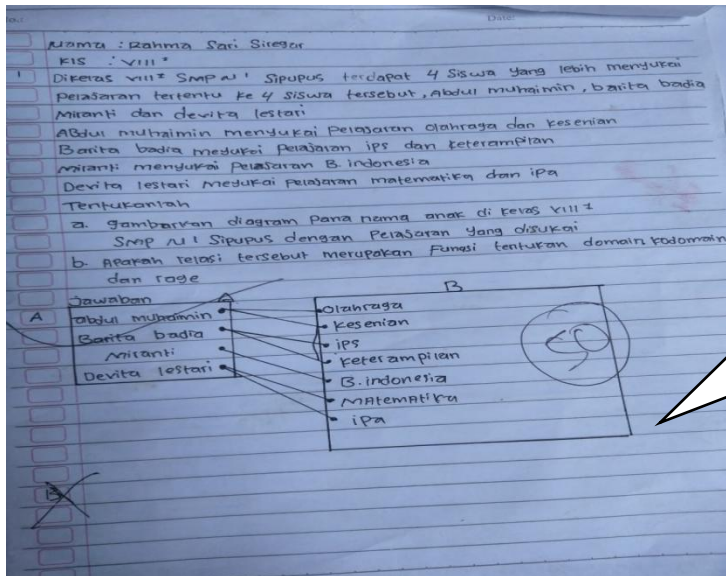 No.:
Date:
Nama : Rahma Sari Siregar
Kls : VIII²
1 Dikelas VIII² SMP N 1 Sipupus terdapat 4 Siswa yang lebih menyukai
pelajaran tertentu ke 4 siswa tersebut, Abdul muhaimin, barita badia
Miranti dan devita lestari
Abdul muhaimin menyukai pelajaran olahraga dan kesenian
Barita badia meyukai pelajaran ips dan keterampilan
miranti menyukai pelajaran B. indonesia
Devita lestari meyukai pelajaran matematika dan ipa
Tentukanlah
a. gambarkan diagram pana nama anak di kelas VIII²
SMP N 1 Sipupus dengan pelajaran yang disukai
b. Apakah relasi tersebut merupakan Fungsi tentukan domain kodomain
dan rage
Jawaban
A
A
B
abdul muhaimin
Barita badia
Miranti
Devita lestari
Olahraga
Kesenian
ips
keterampilan
B. indonesia
MAtemAtika
ipa
50
B